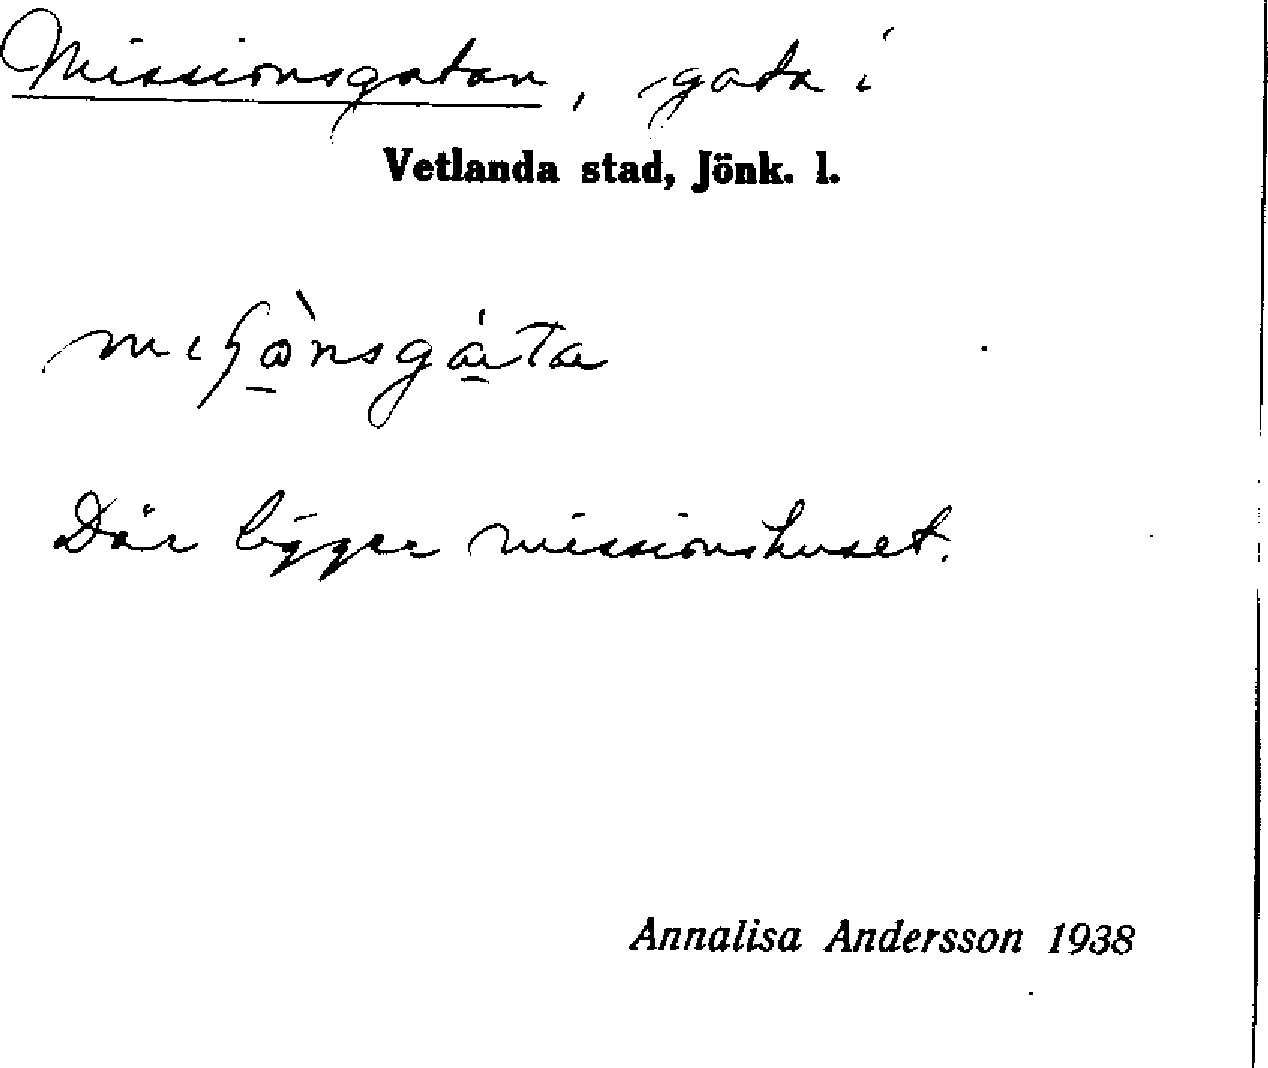 Missionsgatan, gata i
Vetlanda stad, Jönk. l.
Där ligger missionshuset.
Annalisa Andersson 1938